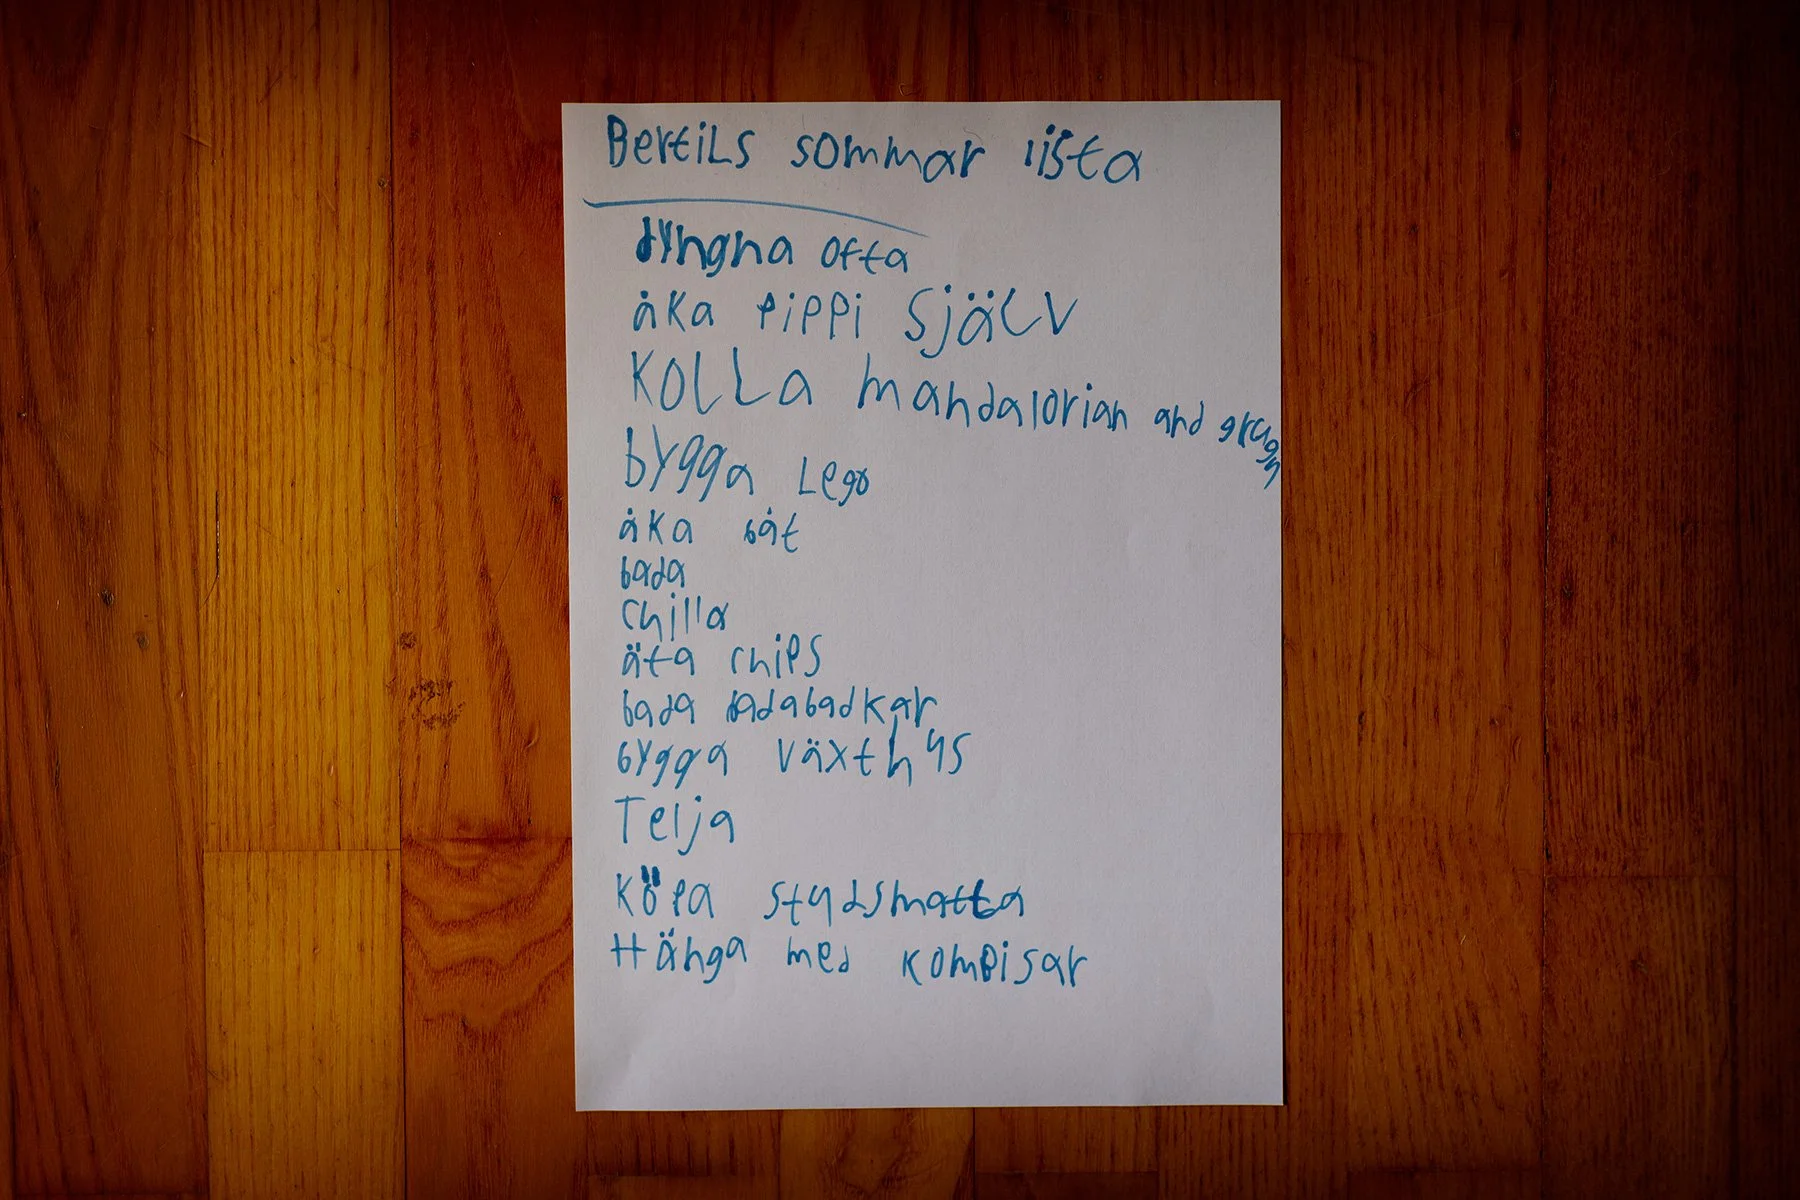 Bertils sommar lista
dyngna ofta
åka pippi själv
KOLLA mandalorian and
bygga Lego
åka båt
bada
chilla
äta chips
bada badabadkar
bygga växthus
Telja
Köpa studsmatta
Hänga med kompisar